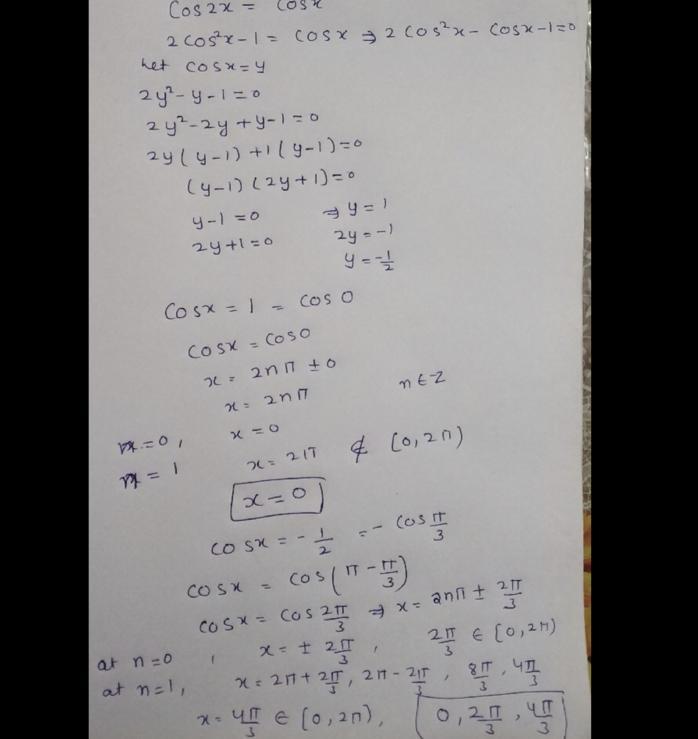 Cos2x = Cosx
2Cos²x-1 = Cosx ⇒ 2Cos²x - Cosx-1=0
Let Cosx=y
2y²-y-1=0
2y²-2y+y-1=0
2y(y-1)+1(y-1)=0
(y-1)(2y+1)=0
y-1=0 ⇒ y=1
2y+1=0 2y=-1
y=-1/2
Cosx = 1 = Cos0
Cosx = Cos0
x = 2nπ ± 0
x = 2nπ n∈Z
n=0, x=0
n=1 x=2π ∉ [0,2π)
x=0
Cosx = -1/2 = -Cosπ/3
Cosx = Cos(π-π/3)
Cosx = Cos2π/3 ⇒ x = 2nπ ± 2π/3
at n=0, x=±2π/3, 2π/3 ∈ [0,2π)
at n=1, x=2π+2π/3, 2π-2π/3, 8π/3, 4π/3
x=4π/3 ∈ [0,2π), 0, 2π/3, 4π/3